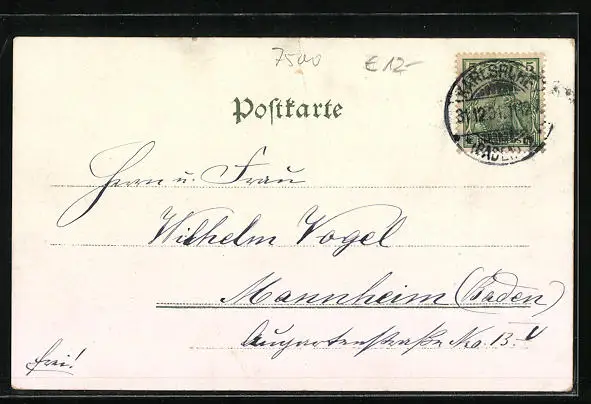 7500 € 12-
5
KARLSRUHE
31.12.01
BADEN
Postkarte
Herrn u. Frau
Wilhelm Vogel
Mannheim (Baden)
Augartenstraße No. 13.
frei!